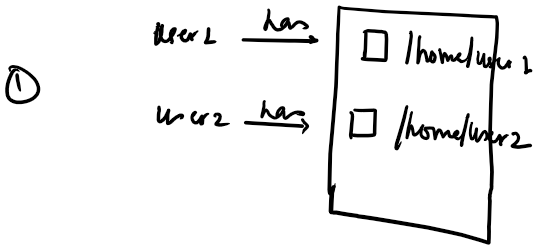 user1 has /home/user1
① user2 has /home/user2